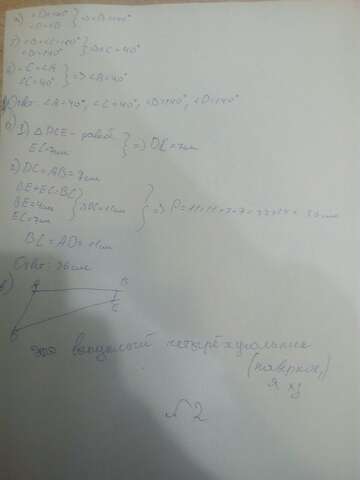 => ∠B=140°
∠B+∠C=180°
∠B=140° } ∠C=40°
∠C=∠A
∠C=40° } => ∠A=40°
Ответ: ∠A=40°, ∠C=40°, ∠B=140°, ∠D=140°
1) △DCE - равноб
EC=7см } => DC=7см
2) DC=AB=7см
BE+EC=BC
BE=4см
EC=7см } => BC=11см } => P=11+11+7+7=22+14=36см
BC=AD=11см
Ответ: 36см
в)
A B
C
D
это выпуклый четырёхугольник
(наверное,
я хз
№2